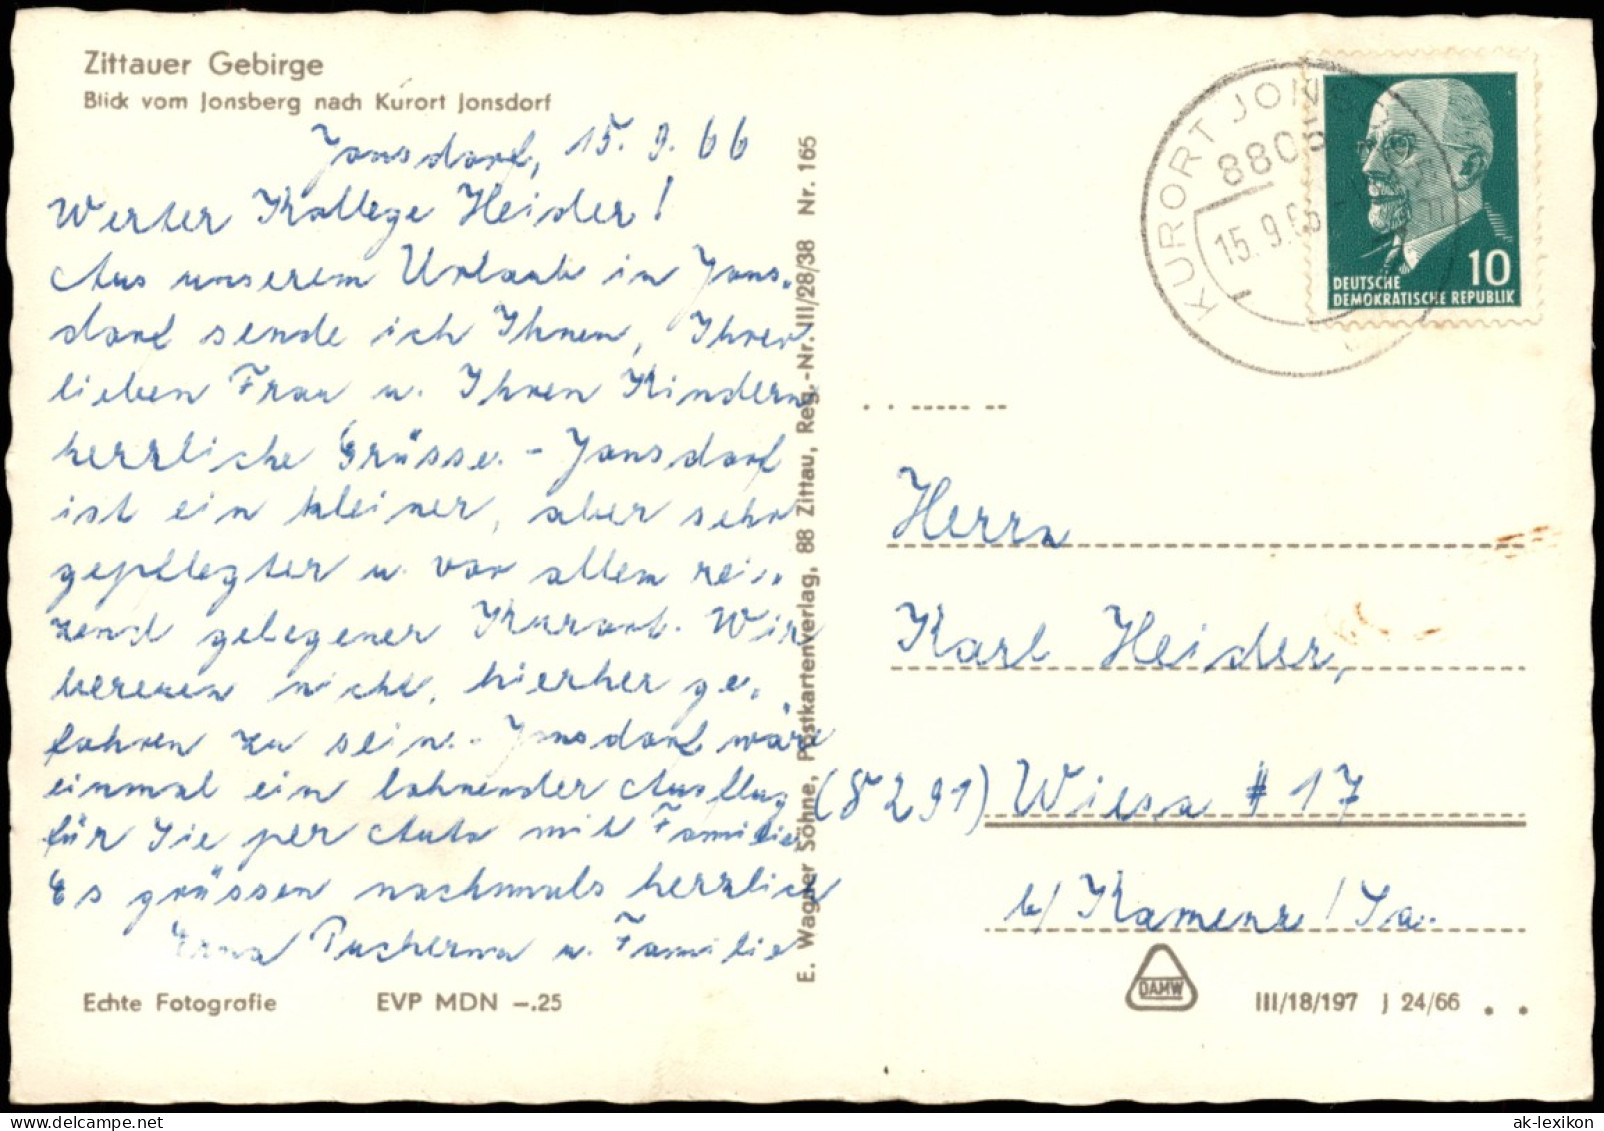 Zittauer Gebirge
Blick vom Jonsberg nach Kurort Jonsdorf
Jonsdorf, 15. 9. 66
Werter Kollege Heider!
Aus unserem Urlaub in Jons-
dorf sende ich Ihnen, Ihrer
lieben Frau u. Ihren Kindern
herzliche Grüsse. - Jonsdorf
ist ein kleiner, aber sehr
gepflegter u. vor allem rei-
zend gelegener Kurort. Wir
bereuen nicht, hierher ge-
fahren zu sein. - Jonsdorf wäre
einmal ein lohnender Ausflug
für Sie per Auto mit Familie
Es grüssen nochmals herzlich
u. Familie
Echte Fotografie EVP MDN –.25
E. Wagner Söhne, Postkartenverlag, 88 Zittau, Reg.-Nr. III/28/38 Nr. 165
KURORT JONS
8805
15.9.66
10
DEUTSCHE
DEMOKRATISCHE REPUBLIK
Herrn
Karl Heider,
(8291) Wiesa # 17
b/ Kamenz / Sa.
DAMW
III/18/197 J 24/66
ak-lexikon